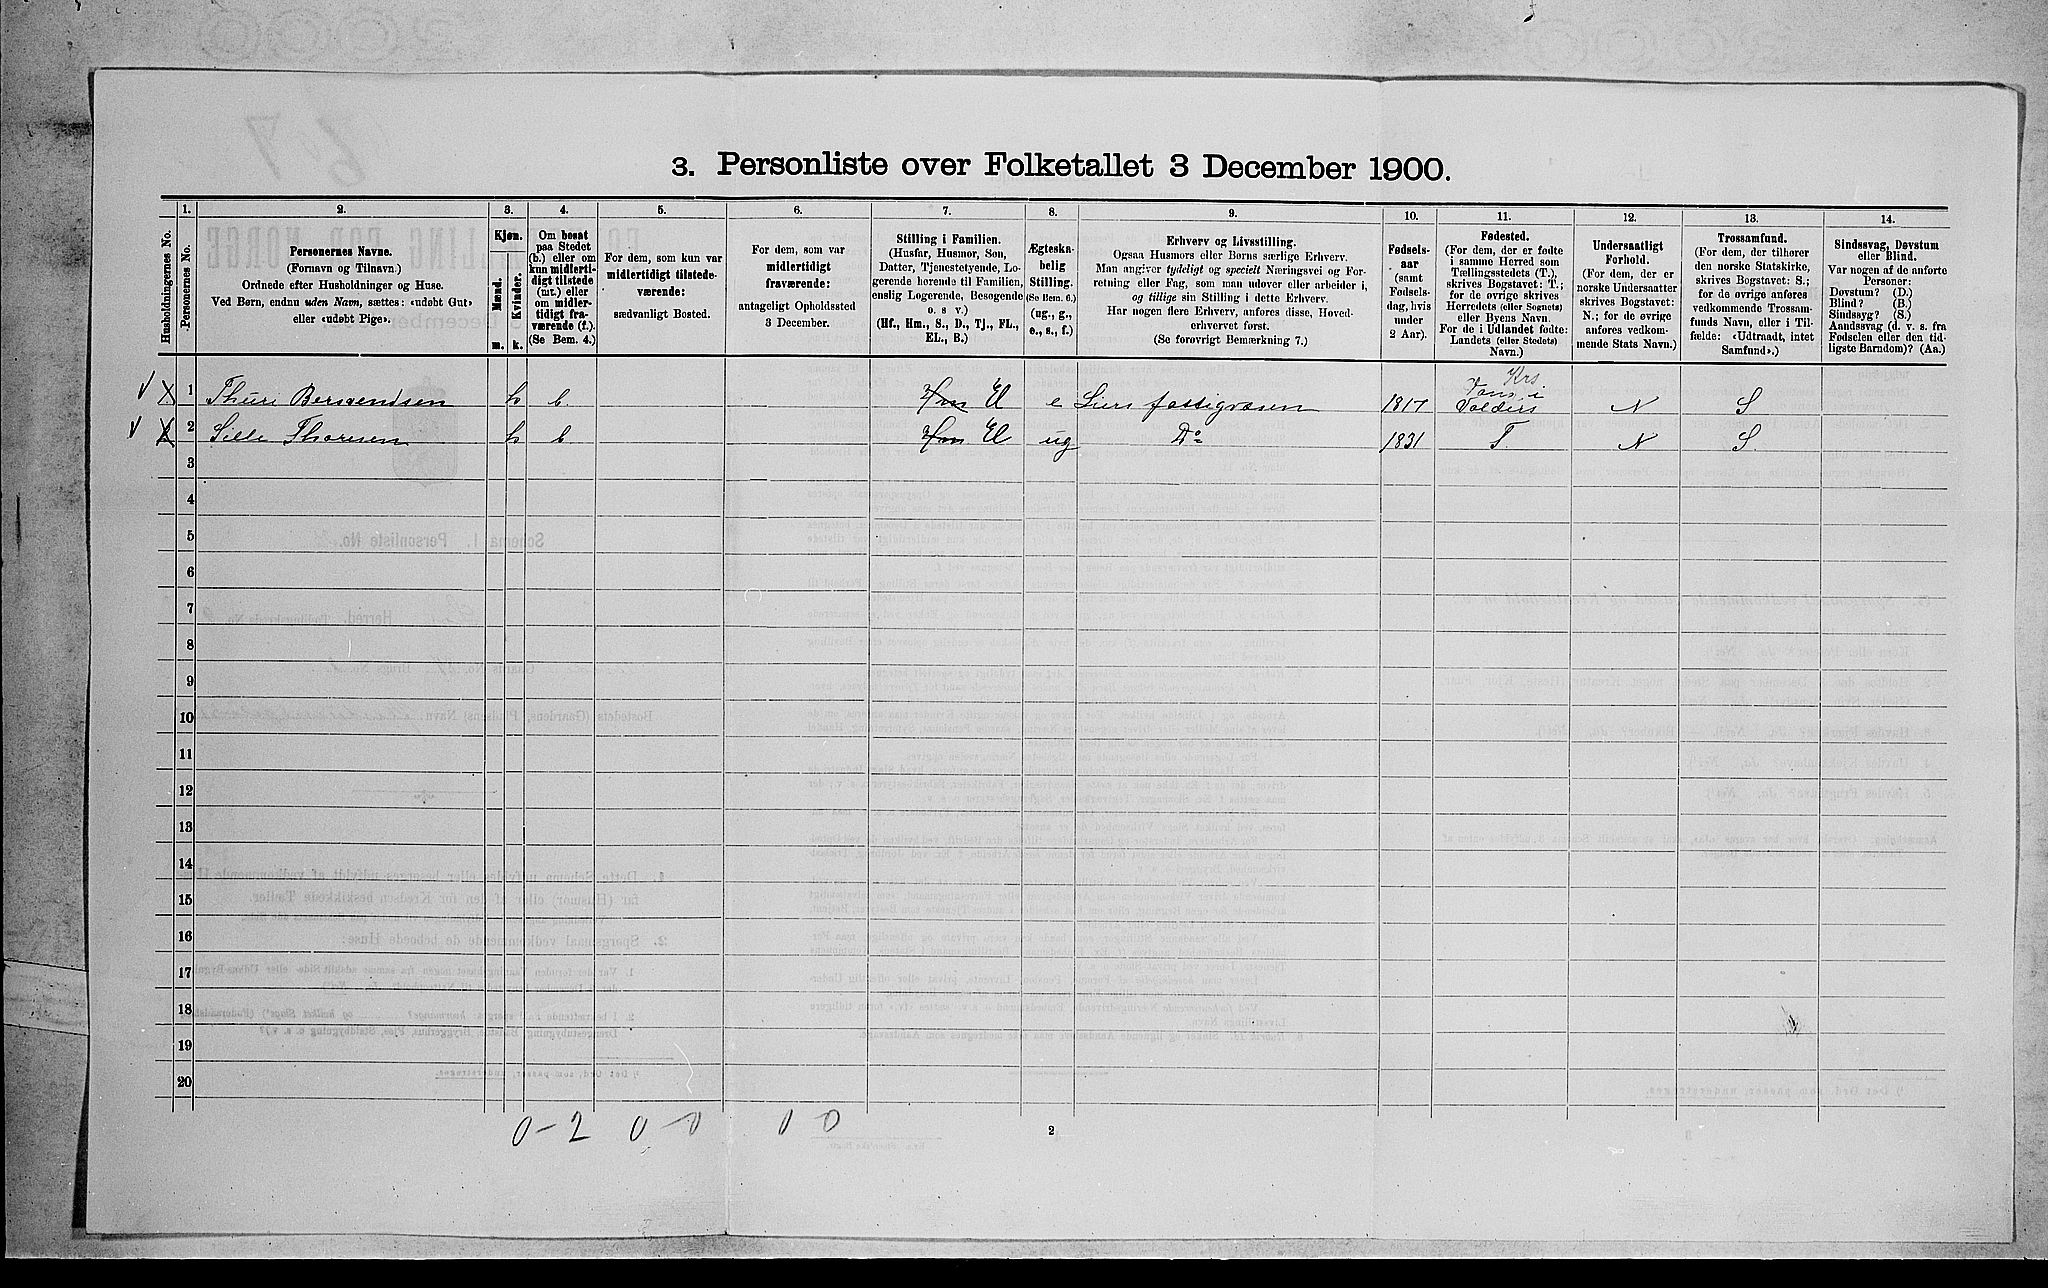 3. Personliste over Folketallet 3 December 1900.
1. 2. 3. 4. 5. 6. 7. 8. 9. 10. 11. 12. 13. 14.
Husholdningernes No.
Personernes No.
Personernes Navne.
(Fornavn og Tilnavn.)
Ordnede efter Husholdninger og Huse.
Ved Børn, endnu uden Navn, sættes: «udøbt Gut»
eller «udøbt Pige».
Kjøn.
Mænd.
Kvinder.
m. k.
Om bosat
paa Stedet
(b.) eller om
kun midlerti-
digt tilstede
(mt.) eller
om midler-
tidigt fra-
værende (f.).
(Se Bem. 4.)
For dem, som kun var
midlertidigt tilstede-
værende:
sædvanligt Bosted.
For dem, som var
midlertidigt
fraværende:
antageligt Opholdssted
3 December.
Stilling i Familien.
(Husfar, Husmor, Søn,
Datter, Tjenestetyende, Lo-
gerende hørende til Familien,
enslig Logerende, Besøgende
o. s v.)
(Hf., Hm., S., D., Tj., FL.,
EL., B.)
Ægteska-
belig
Stilling.
(Se Bem. 6.)
(ug., g.,
e., s., f.)
Erhverv og Livsstilling.
Ogsaa Husmors eller Børns særlige Erhverv.
Man angiver tydeligt og specielt Næringsvei og For-
retning eller Fag, som man udover eller arbeider i,
og tillige sin Stilling i dette Erhverv.
Har nogen flere Erhverv, anføres disse, Hoved-
erhvervet først.
(Se forøvrigt Bemærkning 7.)
Fødsels-
aar
(samt
Fødsels-
dag, hvis
under
2 Aar).
Fødested.
(For dem, der er fødte
i samme Herred som
Tællingsstedets (T.),
skrives Bogstavet: T.;
for de øvrige skrives
Herredets (eller Sognets)
eller Byens Navn.
For de i Udlandet fødte:
Landets (eller Stedets)
Navn.)
Undersaatligt
Forhold.
(For dem, der er
norske Undersaatter
skrives Bogstavet:
N.; for de øvrige
anføres vedkom-
mende Stats Navn.)
Trossamfund.
(For dem, der tilhører
den norske Statskirke,
skrives Bogstavet: S.;
for de øvrige anføres
vedkommende Trossam-
funds Navn, eller i Til-
fælde: «Udtraadt, intet
Samfund».)
Sindssvag, Døvstum
eller Blind.
Var nogen af de anførte
Personer:
Døvstum? (D.)
Blind? (B.)
Sindssyg? (S.)
Aandssvag (d. v. s. fra
Fødselen eller den tid-
ligste Barndom)? (Aa.)
1 b. Hm El e Liers fattigvæsen 1817 Krs. i Valders N S
2 Sille Thoresen b Hm El ug Do 1831 T N S.
3
4
5
6
7
8
9
10
11
12
13
14
15
16
17
18
19
20
0-2 0-0 0 0
2